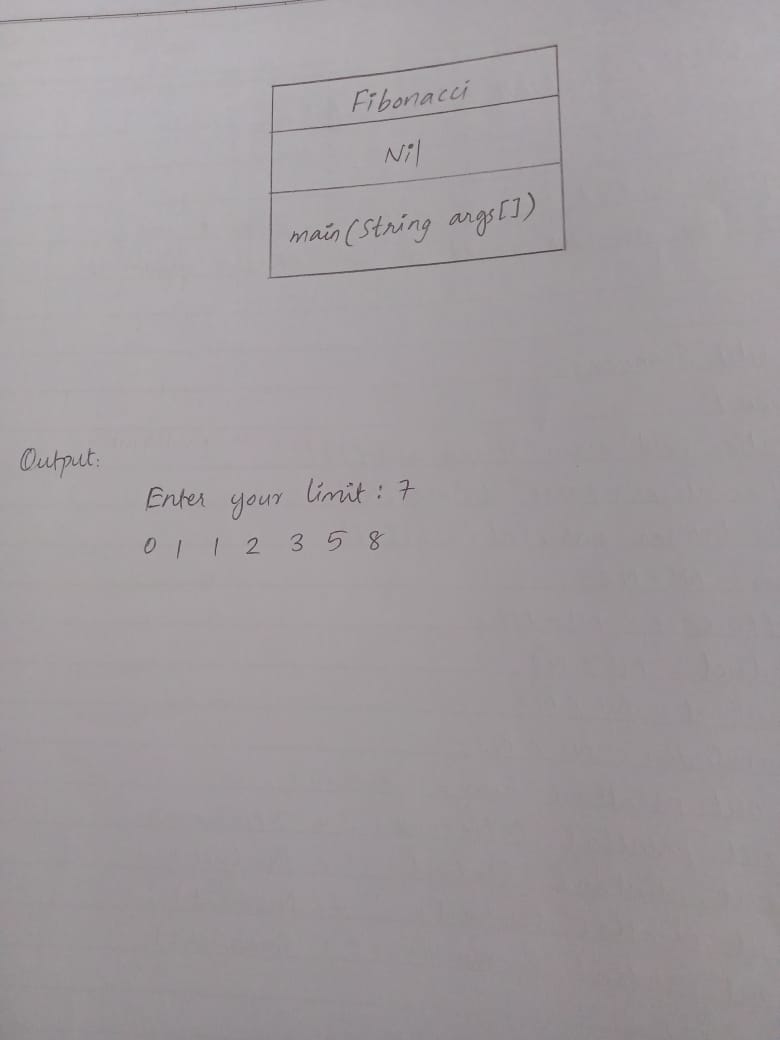 Fibonacci
Nil
main(String args[])
Output:
Enter your limit : 7
0 1 1 2 3 5 8